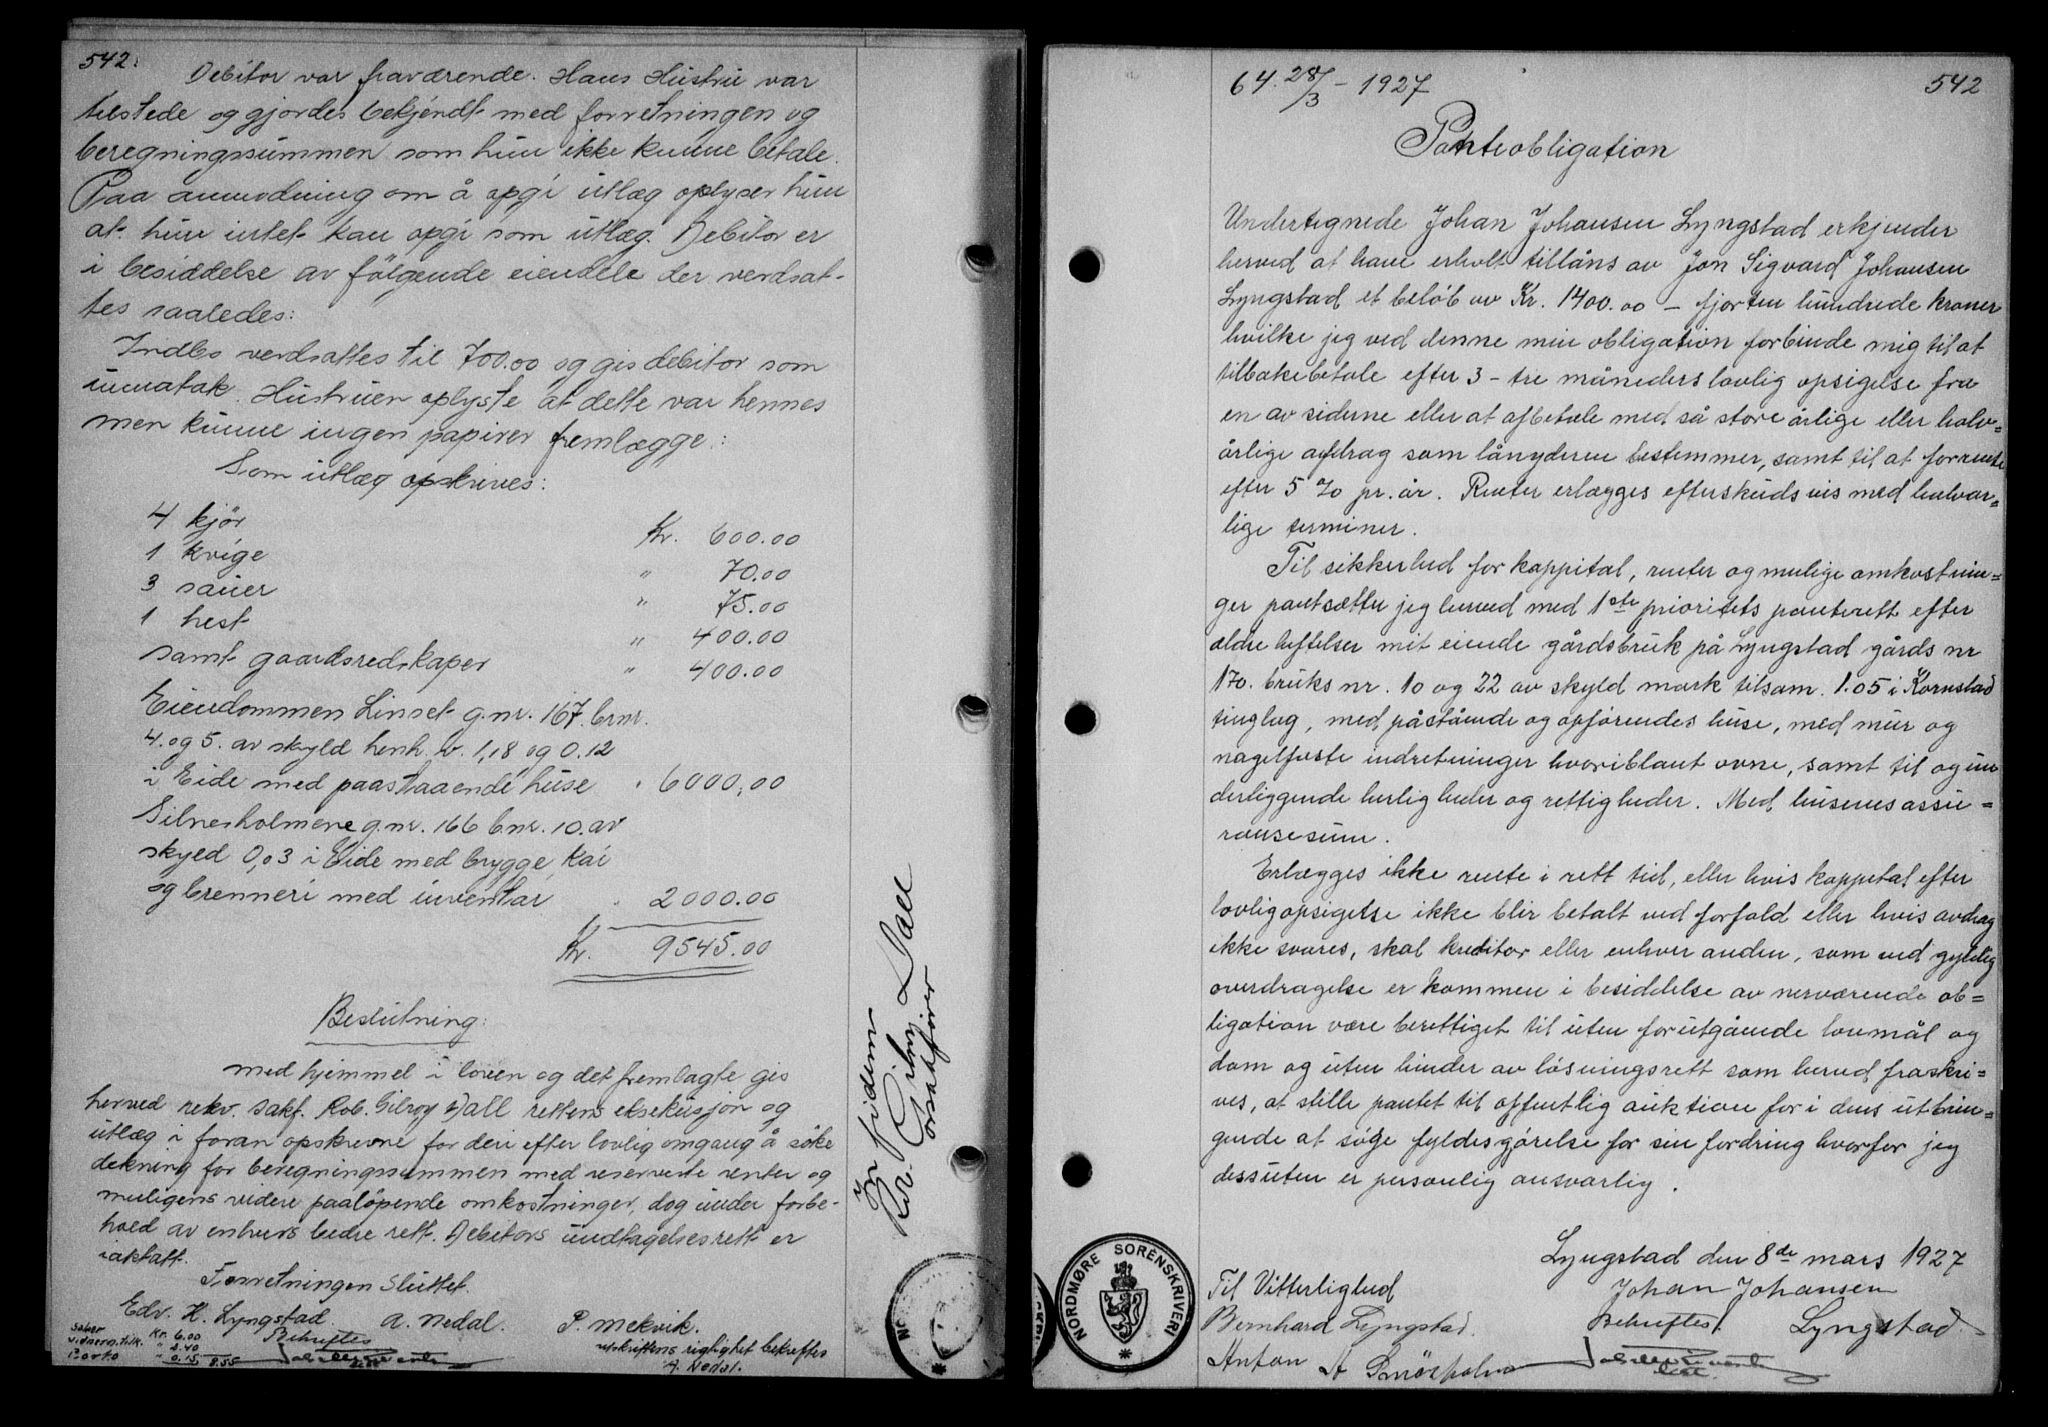 542.
Debitor var fraværende. Hans Hustru var
tilstede og gjordes bekjendt med forretningen og
beregningssummen som hun ikke kunne betale.
Paa anmodning om å opgi utlæg oplyser hun
at hun intet kan opgi som utlæg. Debitor er
i besiddelse av følgende eiendele der verdsat-
tes saaledes:
Indbo verdsattes til 700.00 og gis debitor som
unnatak. Hustruen oplyste at dette var hennes
men kunne ingen papirer fremlægge.:
Som utlæg opskrives:
4 kjør Kr. 600.00
1 kvige " 70.00
3 sauer " 75.00
1 hest " 400.00
samt gaardsredskaper " 400.00
Eiendommen Linset g.nr. 167. brnr.
4. og 5. av skyld henh. v. 1,18 og 0.12
i Eide med paastaaende huse " 6000,00
Silnesholmene g.nr. 166 bnr. 10. av
skyld 0,03 i Eide med brygge, kai
og brenneri med inventar " 2000.00
Kr. 9545.00
Beslutning:
med hjemmel i loven og det fremlagte gis
herved rekv. sakf. Rob. Gilroy Dall rettens eksekusjon og
utlæg i foran opskrevne for deri efter lovlig omgang å søke
dekning for beregningssummen med reserverte renter og
muligens videre paaløpende omkostninger, dog under forbe-
hold av enhvers bedre rett. Debitors undtagelsesrett er
iaktatt.
Forretningen sluttet.
Edv. H. Lyngstad. A. Nedal. P. Mekvik.
Salær Kr. 6.00
Vidnern. tilk. " 2.40
Porto " 0.15 8.55
Bekreftes
utskriftens rigtighet bekreftes
A. Nedal.
In fidem
Rob. Gilroy Dall
orsakfører
64. 28/3 - 1927 542
Panteobligation
Undertegnede Johan Johansen Lyngstad erkjender
herved at have erholt tillåns av Jon Sigvard Johansen
Lyngstad et beløb av Kr. 1400.00 - fjorten hundrede kroner
hvilke jeg ved denne min obligation forbinde mig til at
tilbakebetale efter 3 - tre måneders lovlig opsigelse fra
en av siderne eller at afbetale med så store årlige eller halv=
årlige avdrag som långiveren bestemmer, samt til at forrente
efter 5 % pr. år. Renter erlægges efterskudsvis med halvår=
lige terminer.
Til sikkerhed for kappital, renter og mulige omkostnin=
ger pantsætter jeg herved med 1ste prioritets panterett efter
eldre heftelser mit eiende gårdsbruk på Lyngstad gårds nr
170. bruks nr. 10 og 22 av skyld mark tilsam. 1.05 i Kornstad
tinglag, med påstående og opførendes huse, med mur og
nagelfaste indretninger hvoriblant ovne, samt til og un
derliggende herligheder og rettigheder. Med husenes assu=
ransesum.
Erlægges ikke rente i rett tid, eller hvis kappital efter
lovlig opsigelse ikke blir betalt ved forfald eller hvis avdrag
ikke svares, skal kreditor eller enhver anden, som ved gyldig
overdragelse er kommen i besiddelse av nerværende ob=
ligation være berettiget til uten forutgående lovmål og
dom og uten hinder av løsningsrett som herved fraskri=
ves, at stille pantet til offentlig auktion for i dens utbrin=
gende at søge fyldesgjørelse for sin fordring hvorfor jeg
dessuten er personlig ansvarlig.
Lyngstad den 8de mars 1927
Til Vitterlighed Johan Johansen
Bernhard Lyngstad. Bekreftes Lyngstad.
Anton A
NORDMØRE SORENSKRIVERI